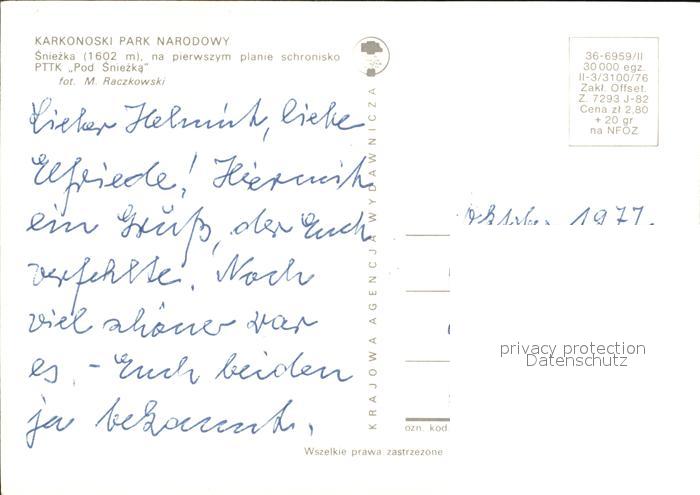 KARKONOSKI PARK NARODOWY
Śnieżka (1602 m), na pierwszym planie schronisko
PTTK „Pod Śnieżką"
fot. M. Raczkowski
36-6959/II
30 000 egz.
II-3/3100/76
Zakł. Offset.
Z. 7293 J-82
Cena zł 2,80
+ 20 gr
na NFOZ
Lieber Helmut, liebe
Elfriede! Hiermit
ein Gruß, der Euch
verfehlte. Noch
viel schöner war
es, - Euch beiden
ja bekannt.
KRAJOWA AGENCJA WYDAWNICZA
Oktober 1977.
privacy protection
Datenschutz
ozn. kod
Wszelkie prawa zastrzeżone